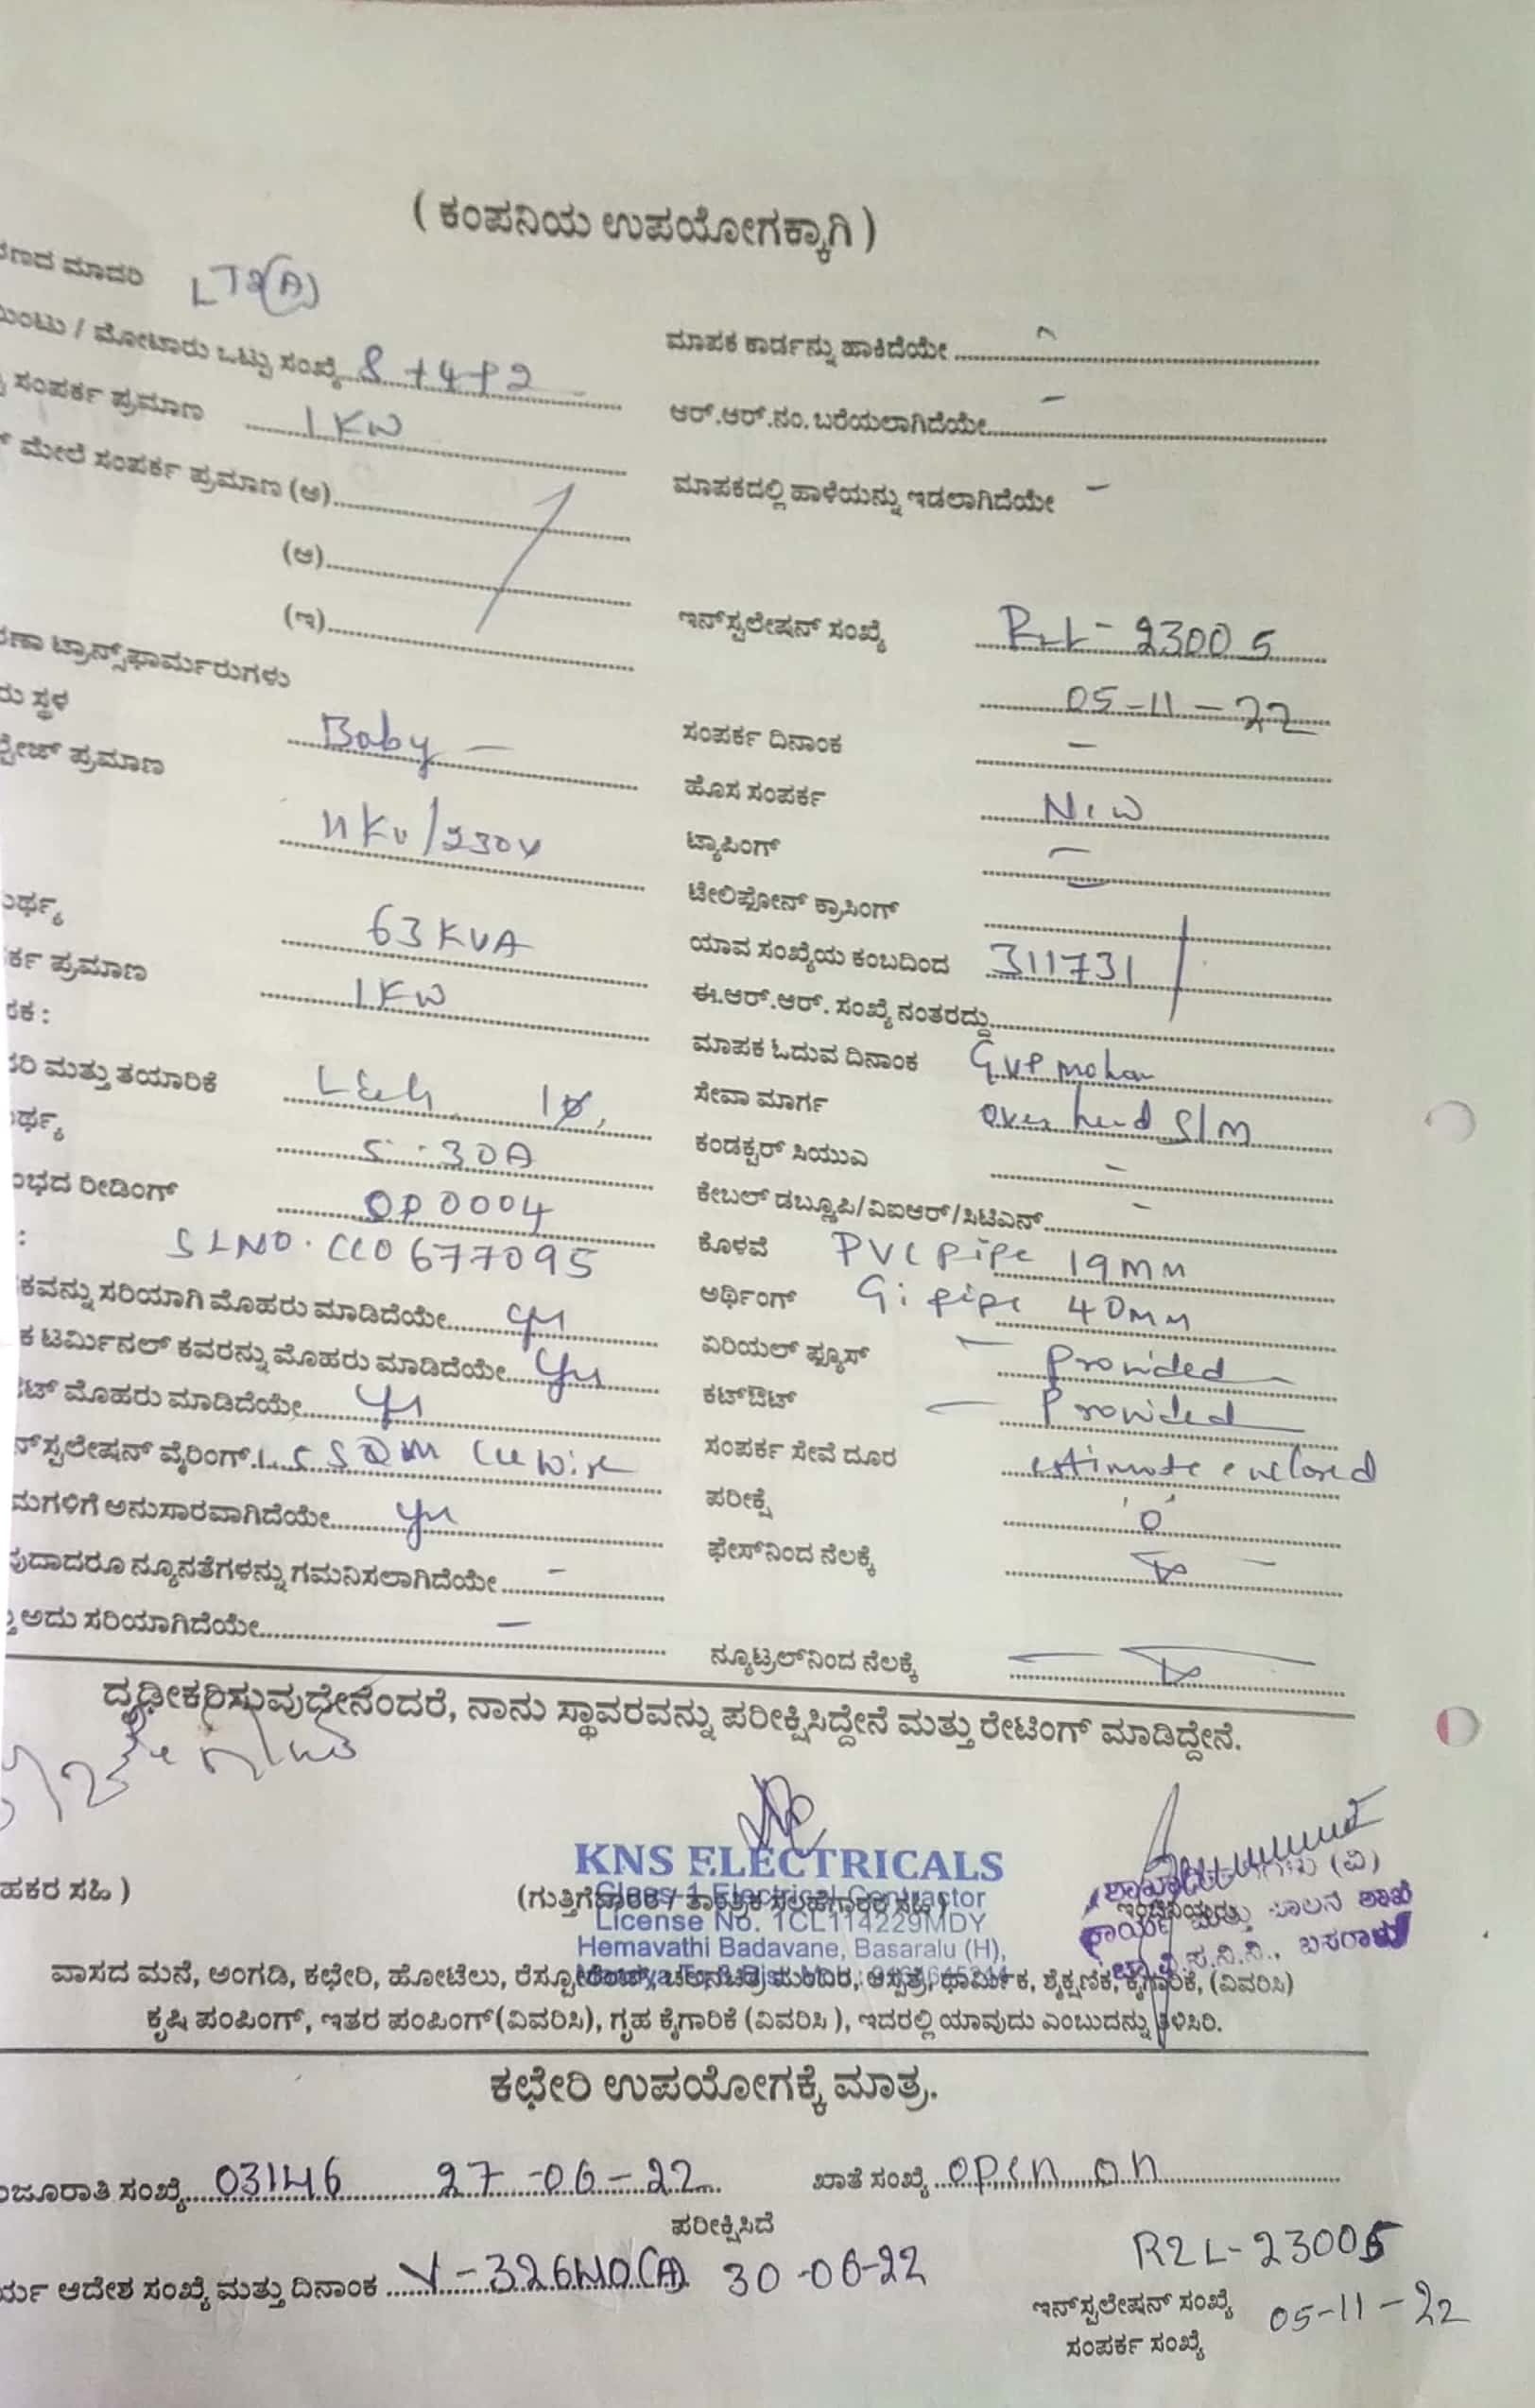 ( ಕಂಪನಿಯ ಉಪಯೋಗಕ್ಕಾಗಿ )
ಮಾದರಿ LT2(A)
/ ಮೋಟಾರು ಒಟ್ಟು ಸಂಖ್ಯೆ 8+4+2
ಮಾಪಕ ಕಾರ್ಡನ್ನು ಹಾಕಿದೆಯೇ
ಸಂಪರ್ಕ ಪ್ರಮಾಣ 1KW
ಆರ್.ಆರ್.ನಂ. ಬರೆಯಲಾಗಿದೆಯೇ -
ಮೇಲೆ ಸಂಪರ್ಕ ಪ್ರಮಾಣ (ಅ)
ಮಾಪಕದಲ್ಲಿ ಹಾಳೆಯನ್ನು ಇಡಲಾಗಿದೆಯೇ -
(ಆ)
(ಇ)
ಇನ್‌ಸ್ಟಲೇಷನ್ ಸಂಖ್ಯೆ 23005
05-11-22
ಟ್ರಾನ್ಸ್‌ಫಾರ್ಮರುಗಳು
ಸ್ಥಳ Baby -
ಸಂಪರ್ಕ ದಿನಾಂಕ -
ಪ್ರಮಾಣ 11KV/230V
ಹೊಸ ಸಂಪರ್ಕ New
ಟ್ಯಾಪಿಂಗ್
ಟೇಲಿಫೋನ್ ಕ್ರಾಸಿಂಗ್
63KVA
ಯಾವ ಸಂಖ್ಯೆಯ ಕಂಬದಿಂದ 311731
ಪ್ರಮಾಣ 1KW
ಈ.ಆರ್.ಆರ್. ಸಂಖ್ಯೆ ನಂತರದ್ದು
ಮಾಪಕ ಓದುವ ದಿನಾಂಕ GVP mohan
ಮತ್ತು ತಯಾರಿಕೆ L&G 1ø,
ಸೇವಾ ಮಾರ್ಗ over head S/M
5-30A
ಕಂಡಕ್ಟರ್ ಸಿಯುಎ -
ರೀಡಿಂಗ್ 000004
ಕೇಬಲ್ ಡಬ್ಲ್ಯೂಪಿ/ವಿಐಆರ್/ಸಿಟಿಎನ್ -
: SLNO. CC0677095
ಕೊಳವೆ PVC pipe 19MM
ಸರಿಯಾಗಿ ಮೊಹರು ಮಾಡಿದೆಯೇ yes
ಅರ್ಥಿಂಗ್ Gi pipe 40MM
ಟರ್ಮಿನಲ್ ಕವರನ್ನು ಮೊಹರು ಮಾಡಿದೆಯೇ yes
ಏರಿಯಲ್ ಫ್ಯೂಸ್ - Provided
ಮೊಹರು ಮಾಡಿದೆಯೇ yes
ಕಟ್‌ಔಟ್ - Provided
ವೈರಿಂಗ್ 1.5 SQM cu wire
ಸಂಪರ್ಕ ಸೇವೆ ದೂರ estimate enclosed
ಅನುಸಾರವಾಗಿದೆಯೇ yes
ಪರೀಕ್ಷೆ 'o'
ನ್ಯೂನತೆಗಳನ್ನು ಗಮನಿಸಲಾಗಿದೆಯೇ -
ಫೇಸ್‌ನಿಂದ ನೆಲಕ್ಕೆ
ಅದು ಸರಿಯಾಗಿದೆಯೇ -
ನ್ಯೂಟ್ರಲ್‌ನಿಂದ ನೆಲಕ್ಕೆ
ದೃಢೀಕರಿಸುವುದೇನೆಂದರೆ, ನಾನು ಸ್ಥಾವರವನ್ನು ಪರೀಕ್ಷಿಸಿದ್ದೇನೆ ಮತ್ತು ರೇಟಿಂಗ್ ಮಾಡಿದ್ದೇನೆ.
KNS ELECTRICALS
Class-1 Electrical Contractor
License No. 1CL114229MDY
Hemavathi Badavane, Basaralu (H),
ಸಹಿ )
ವಾಸದ ಮನೆ, ಅಂಗಡಿ, ಕಛೇರಿ, ಹೋಟೆಲು, ಧಾರ್ಮಿಕ, ಶೈಕ್ಷಣಿಕ, ಕೈಗಾರಿಕೆ, (ವಿವರಿಸಿ)
ಕೃಷಿ ಪಂಪಿಂಗ್, ಇತರ ಪಂಪಿಂಗ್(ವಿವರಿಸಿ), ಗೃಹ ಕೈಗಾರಿಕೆ (ವಿವರಿಸಿ ), ಇದರಲ್ಲಿ ಯಾವುದು ಎಂಬುದನ್ನು ತಿಳಿಸಿರಿ.
ಕಛೇರಿ ಉಪಯೋಗಕ್ಕೆ ಮಾತ್ರ.
ಸಂಖ್ಯೆ 03146 27-06-22 ಖಾತೆ ಸಂಖ್ಯೆ open on
ಪರೀಕ್ಷಿಸಿದೆ
R2L-23005
ಆದೇಶ ಸಂಖ್ಯೆ ಮತ್ತು ದಿನಾಂಕ 30-06-22
ಇನ್‌ಸ್ಟಲೇಷನ್ ಸಂಖ್ಯೆ 05-11-22
ಸಂಪರ್ಕ ಸಂಖ್ಯೆ